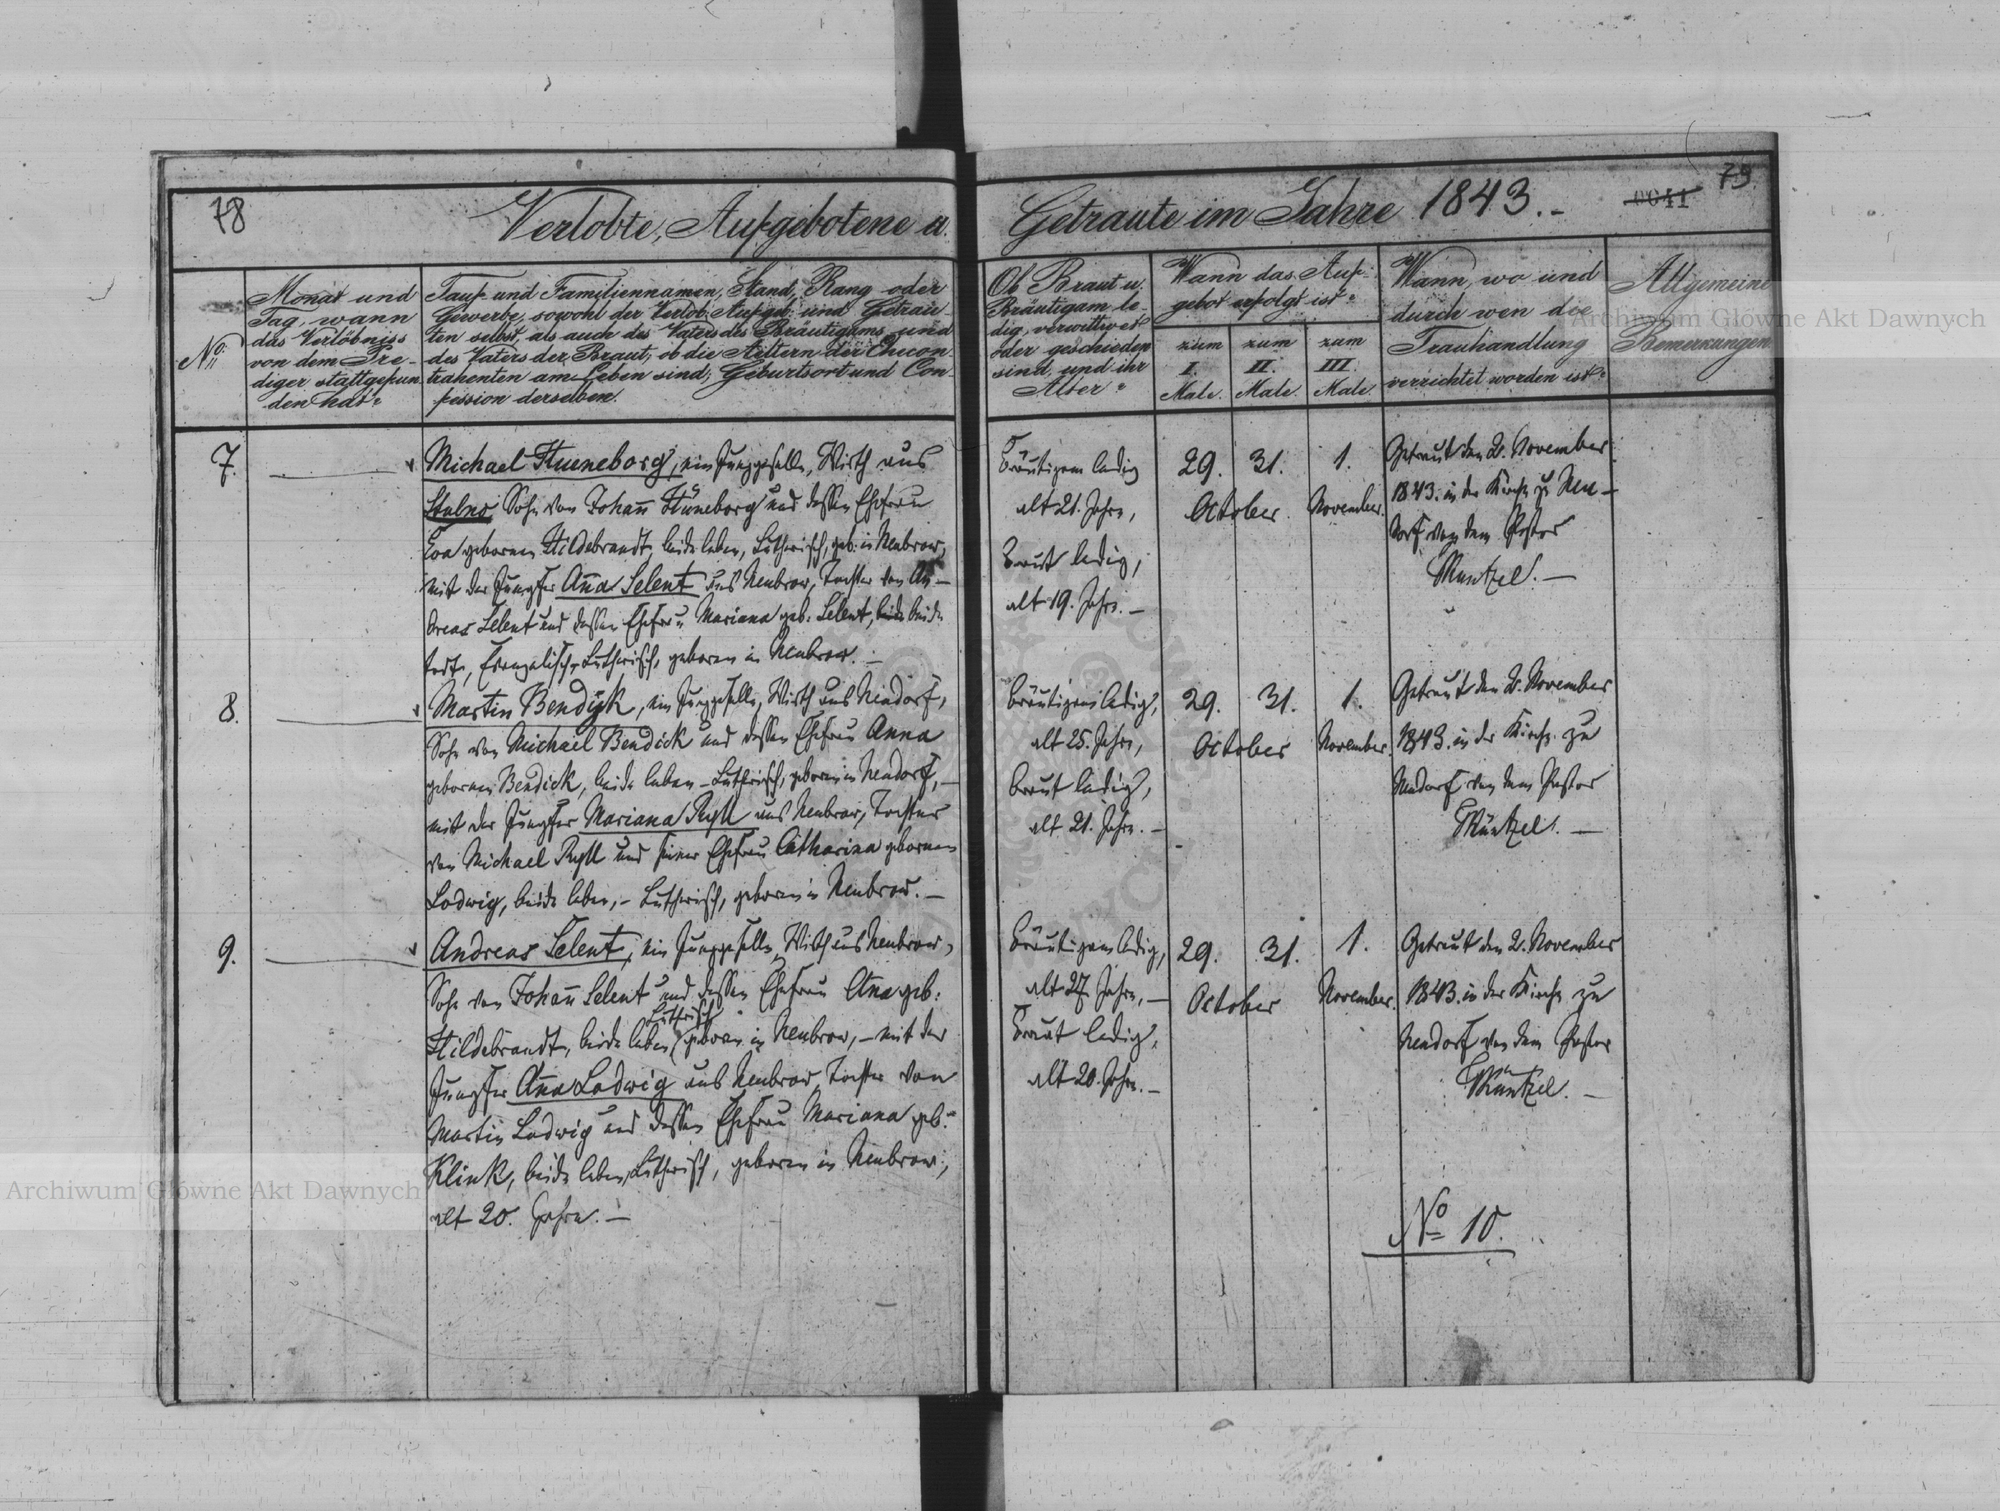 78
Verlobte, Aufgebotene u.
Getraute im Jahre 1843.-
0041
79.
No.
Monat und
Tag, wann
das Verlöbniss
von dem Pre-
diger stattgefun
den hat?
Tauf und Familiennamen, Stand, Rang oder
Gewerbe, sowohl der Verlob. Aufgeb. und Getrau-
ten selbst, als auch des Vaters des Bräutigams und
des Vaters der Braut; ob die Aeltern der Checon-
trahenten am Leben sind; Geburtsort und Con-
fession derselben.
Ob Braut u.
Bräutigam le-
dig, verwittwet
oder geschieden
sind, und ihr
Alter?
Wann das Auf-
gebot erfolgt ist?
zum I. Male.
zum II. Male.
zum III. Male.
Wann, wo und
durch wen die
Trauhandlung
verrichtet worden ist?
Allgemeine
Bemerkungen
7.
Michael Hueneborg, ein Junggeselle, Wirth aus
Stulno Sohn von Johañ Hüneborg und dessen Ehefrau
Eva gebornen Hildebrandt, beide leben, Lutherisch, geb. in Neubrow,
mit der Jungfer Aña Selent aus Neubrow, Tochter von An-
dreas Selent und dessen Ehefrau Mariana geb: Selent, beide
todt, Evangelisch-Lutherisch, geboren in Neubrow. –
Bräutigam ledig
alt 21. Jahre,
Braut ledig,
alt 19. Jahre. –
29. 31. 1.
October November.
Getraut den 2. November
1843. in der Kirche zu Neu-
dorf von dem Pastor
Müntzel. –
8.
Martin Bendyk, ein Junggeselle, Wirth aus Neudorf,
Sohn von Michael Bendick und dessen Ehefrau Anna
gebornen Bendick, beide leben – Lutherisch, geboren in Neudorf, –
mit der Jungfer Mariana Ryll aus Neubrow, Tochter
von Michael Ryll und seiner Ehefrau Catharina gebornen
Ladwig, beide leben, – Lutherisch, geboren in Neubrow. –
Bräutigam ledig,
alt 25. Jahre,
Braut ledig,
alt 21. Jahre. –
29. 31. 1.
October November.
Getraut den 2. November
1843. in der Kirche zu
Neudorf von dem Pastor
Müntzel. –
9.
Andreas Selent, ein Junggeselle, Wirth aus Neubrow,
Sohn von Johañ Selent und dessen Ehefrau Ana geb:
Lutherisch
Hildebrandt, beide leben, geboren in Neubrow, – mit der
Jungfer Aña Ladwig aus Neubrow Tochter von
Martin Ladwig und dessen Ehefrau Mariana geb:
Klink, beide leben, Lutherisch, geboren in Neubrow,
alt 20. Jahre. –
Bräutigam ledig,
alt 27. Jahre, –
Braut ledig,
alt 20. Jahre. –
29. 31. 1.
October November.
Getraut den 2. November
1843. in der Kirche zu
Neudorf von dem Pastor
Müntzel. –
No 10.
Archiwum Główne Akt Dawnych
Archiwum Główne Akt Dawnych